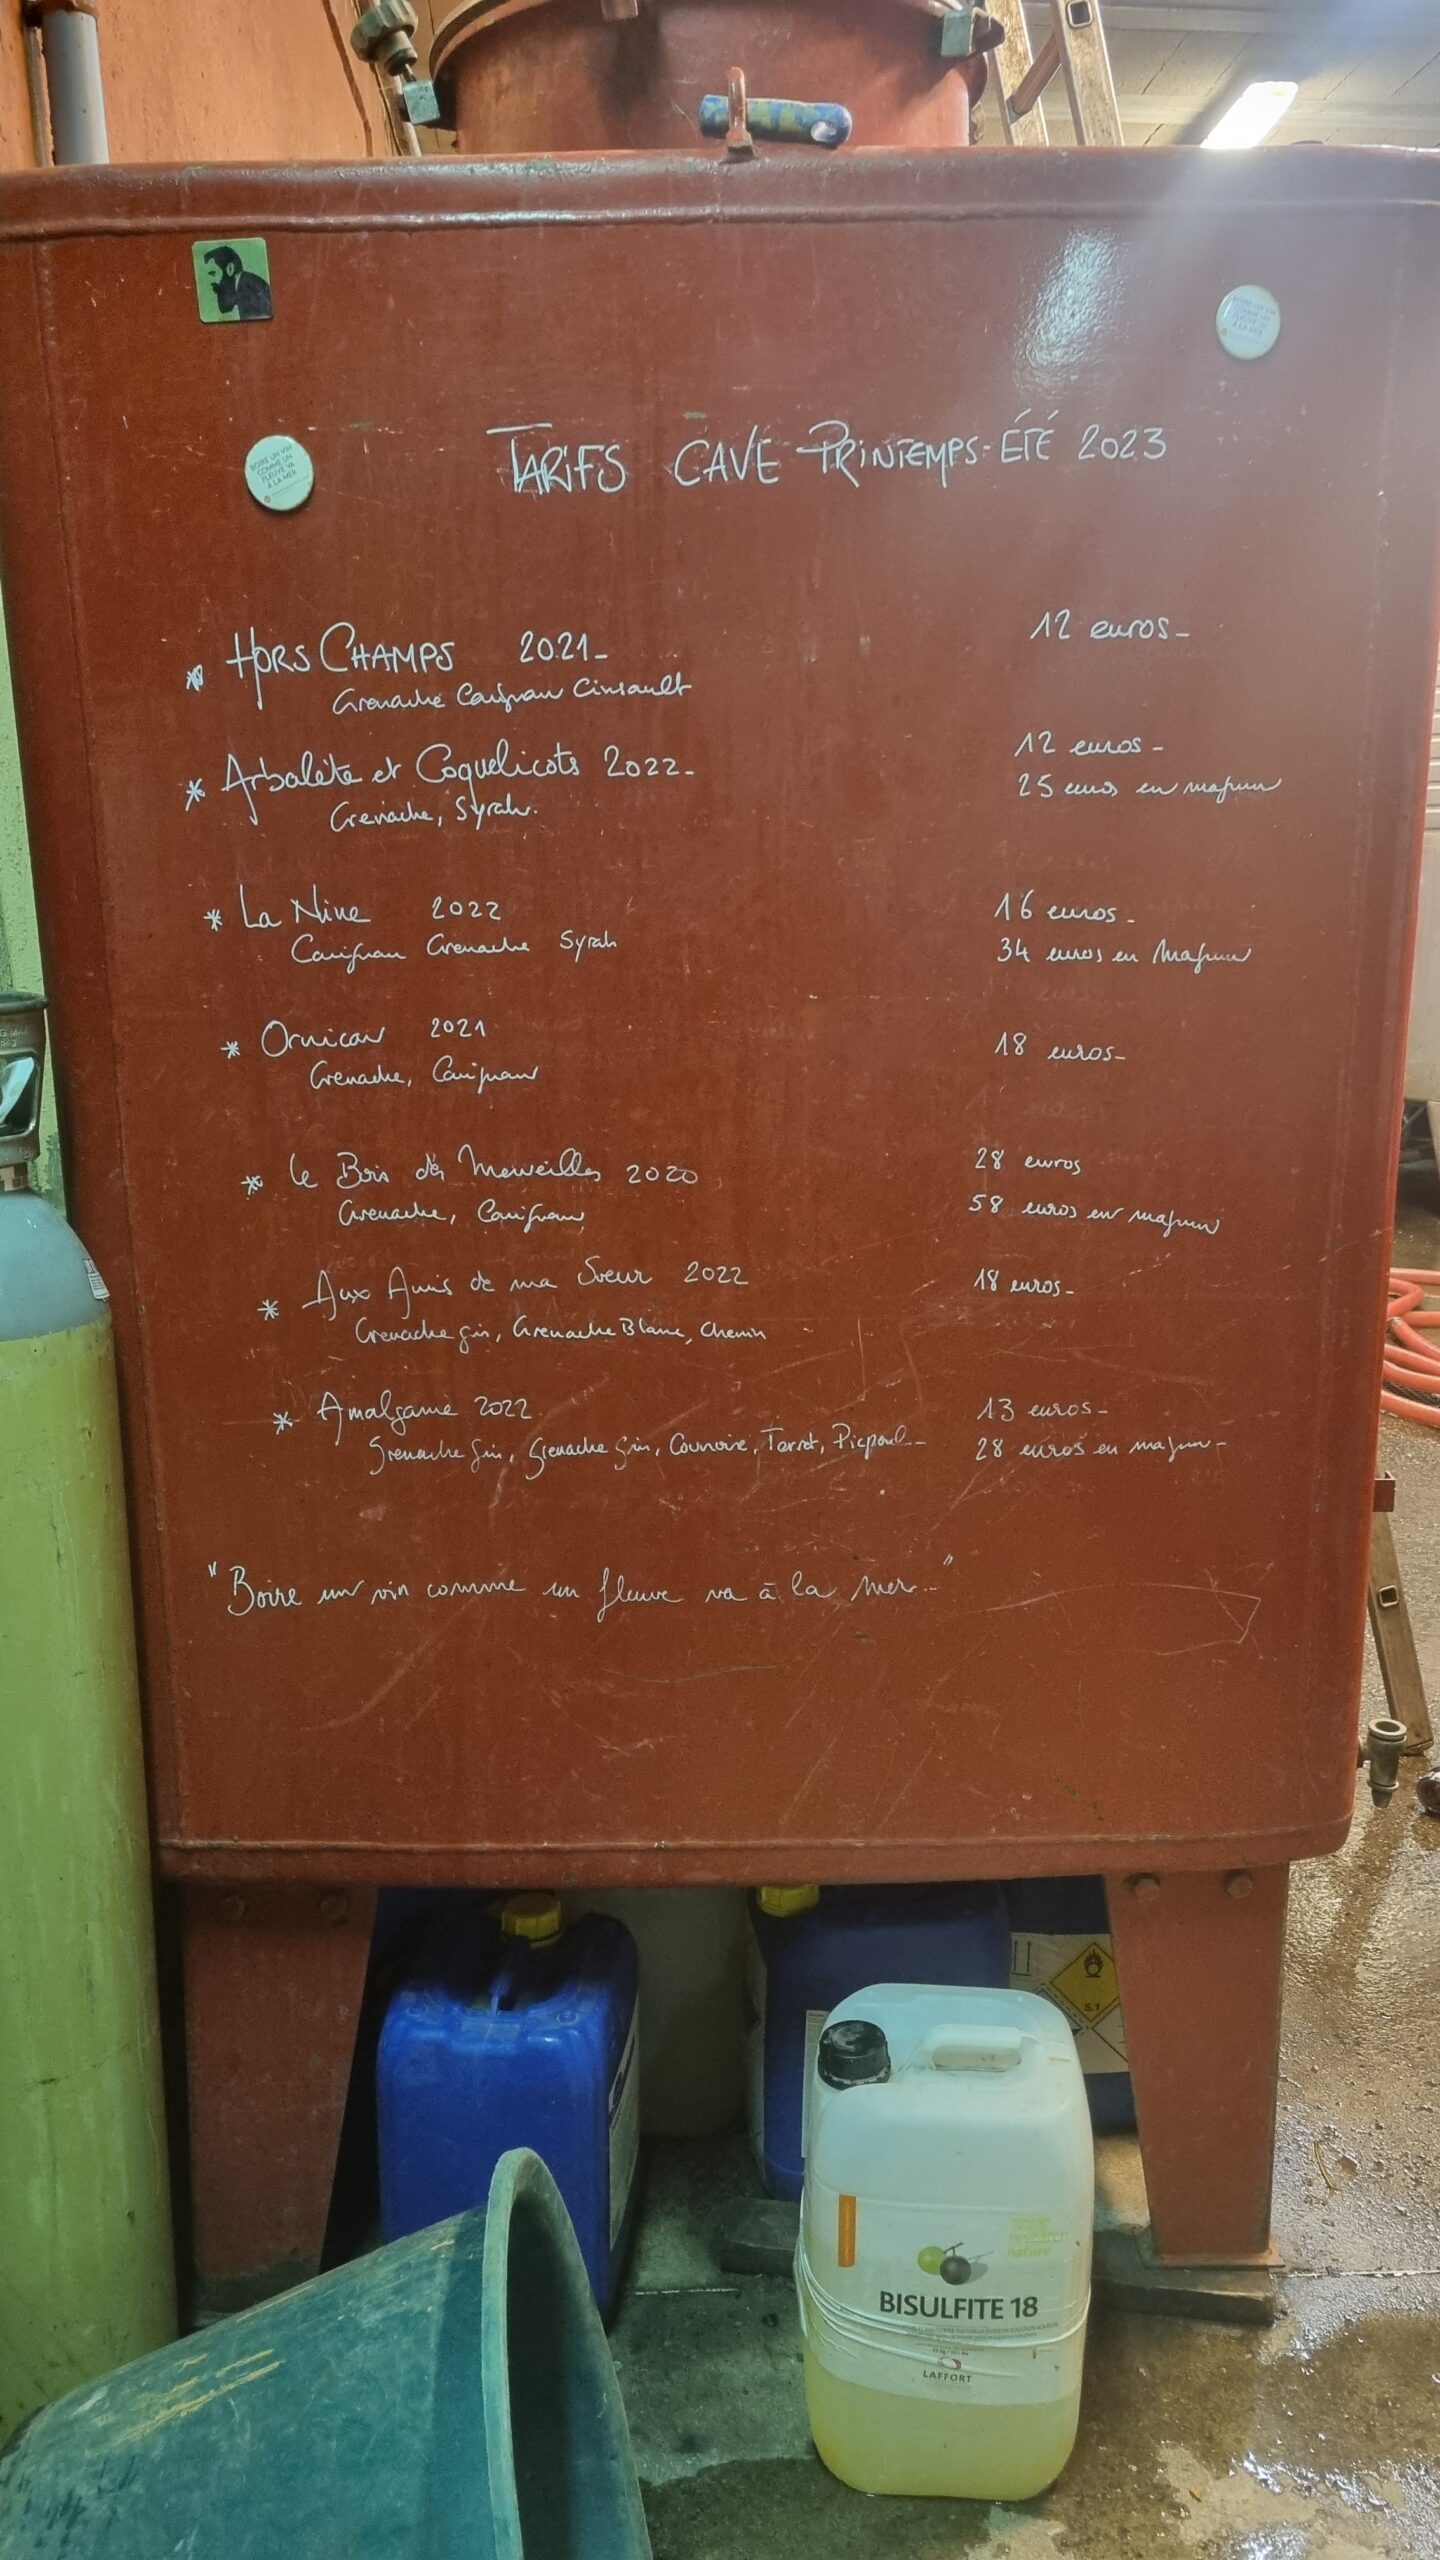 BOIRE UN VIN
COMME UN
FLEUVE VA
À LA MER
BOIRE UN VIN
COMME UN
FLEUVE VA
À LA MER
TARIFS CAVE PRINTEMPS-ÉTÉ 2023
* HORS CHAMPS 2021_ 12 euros_
Grenache Carignan Cinsault
* Arbalète et Coquelicots 2022_ 12 euros_
Grenache, Syrah. 25 euros en magnum
* La Nine 2022 16 euros_
Carignan Grenache Syrah 34 euros en Magnum
* Ornicar 2021 18 euros_
Grenache, Carignan
* Le Bois des Merveilles 2020 28 euros
Grenache, Carignan 58 euros en magnum
* Aux Amis de ma Soeur 2022 18 euros_
Grenache gris, Grenache Blanc, Chenin
* Amalgame 2022 13 euros_
Grenache gris, Grenache gris, Counoise, Terret, Picpoul_ 28 euros en magnum_
"Boire un vin comme un fleuve va à la mer..."
5.1
nature
BISULFITE 18
LAFFORT